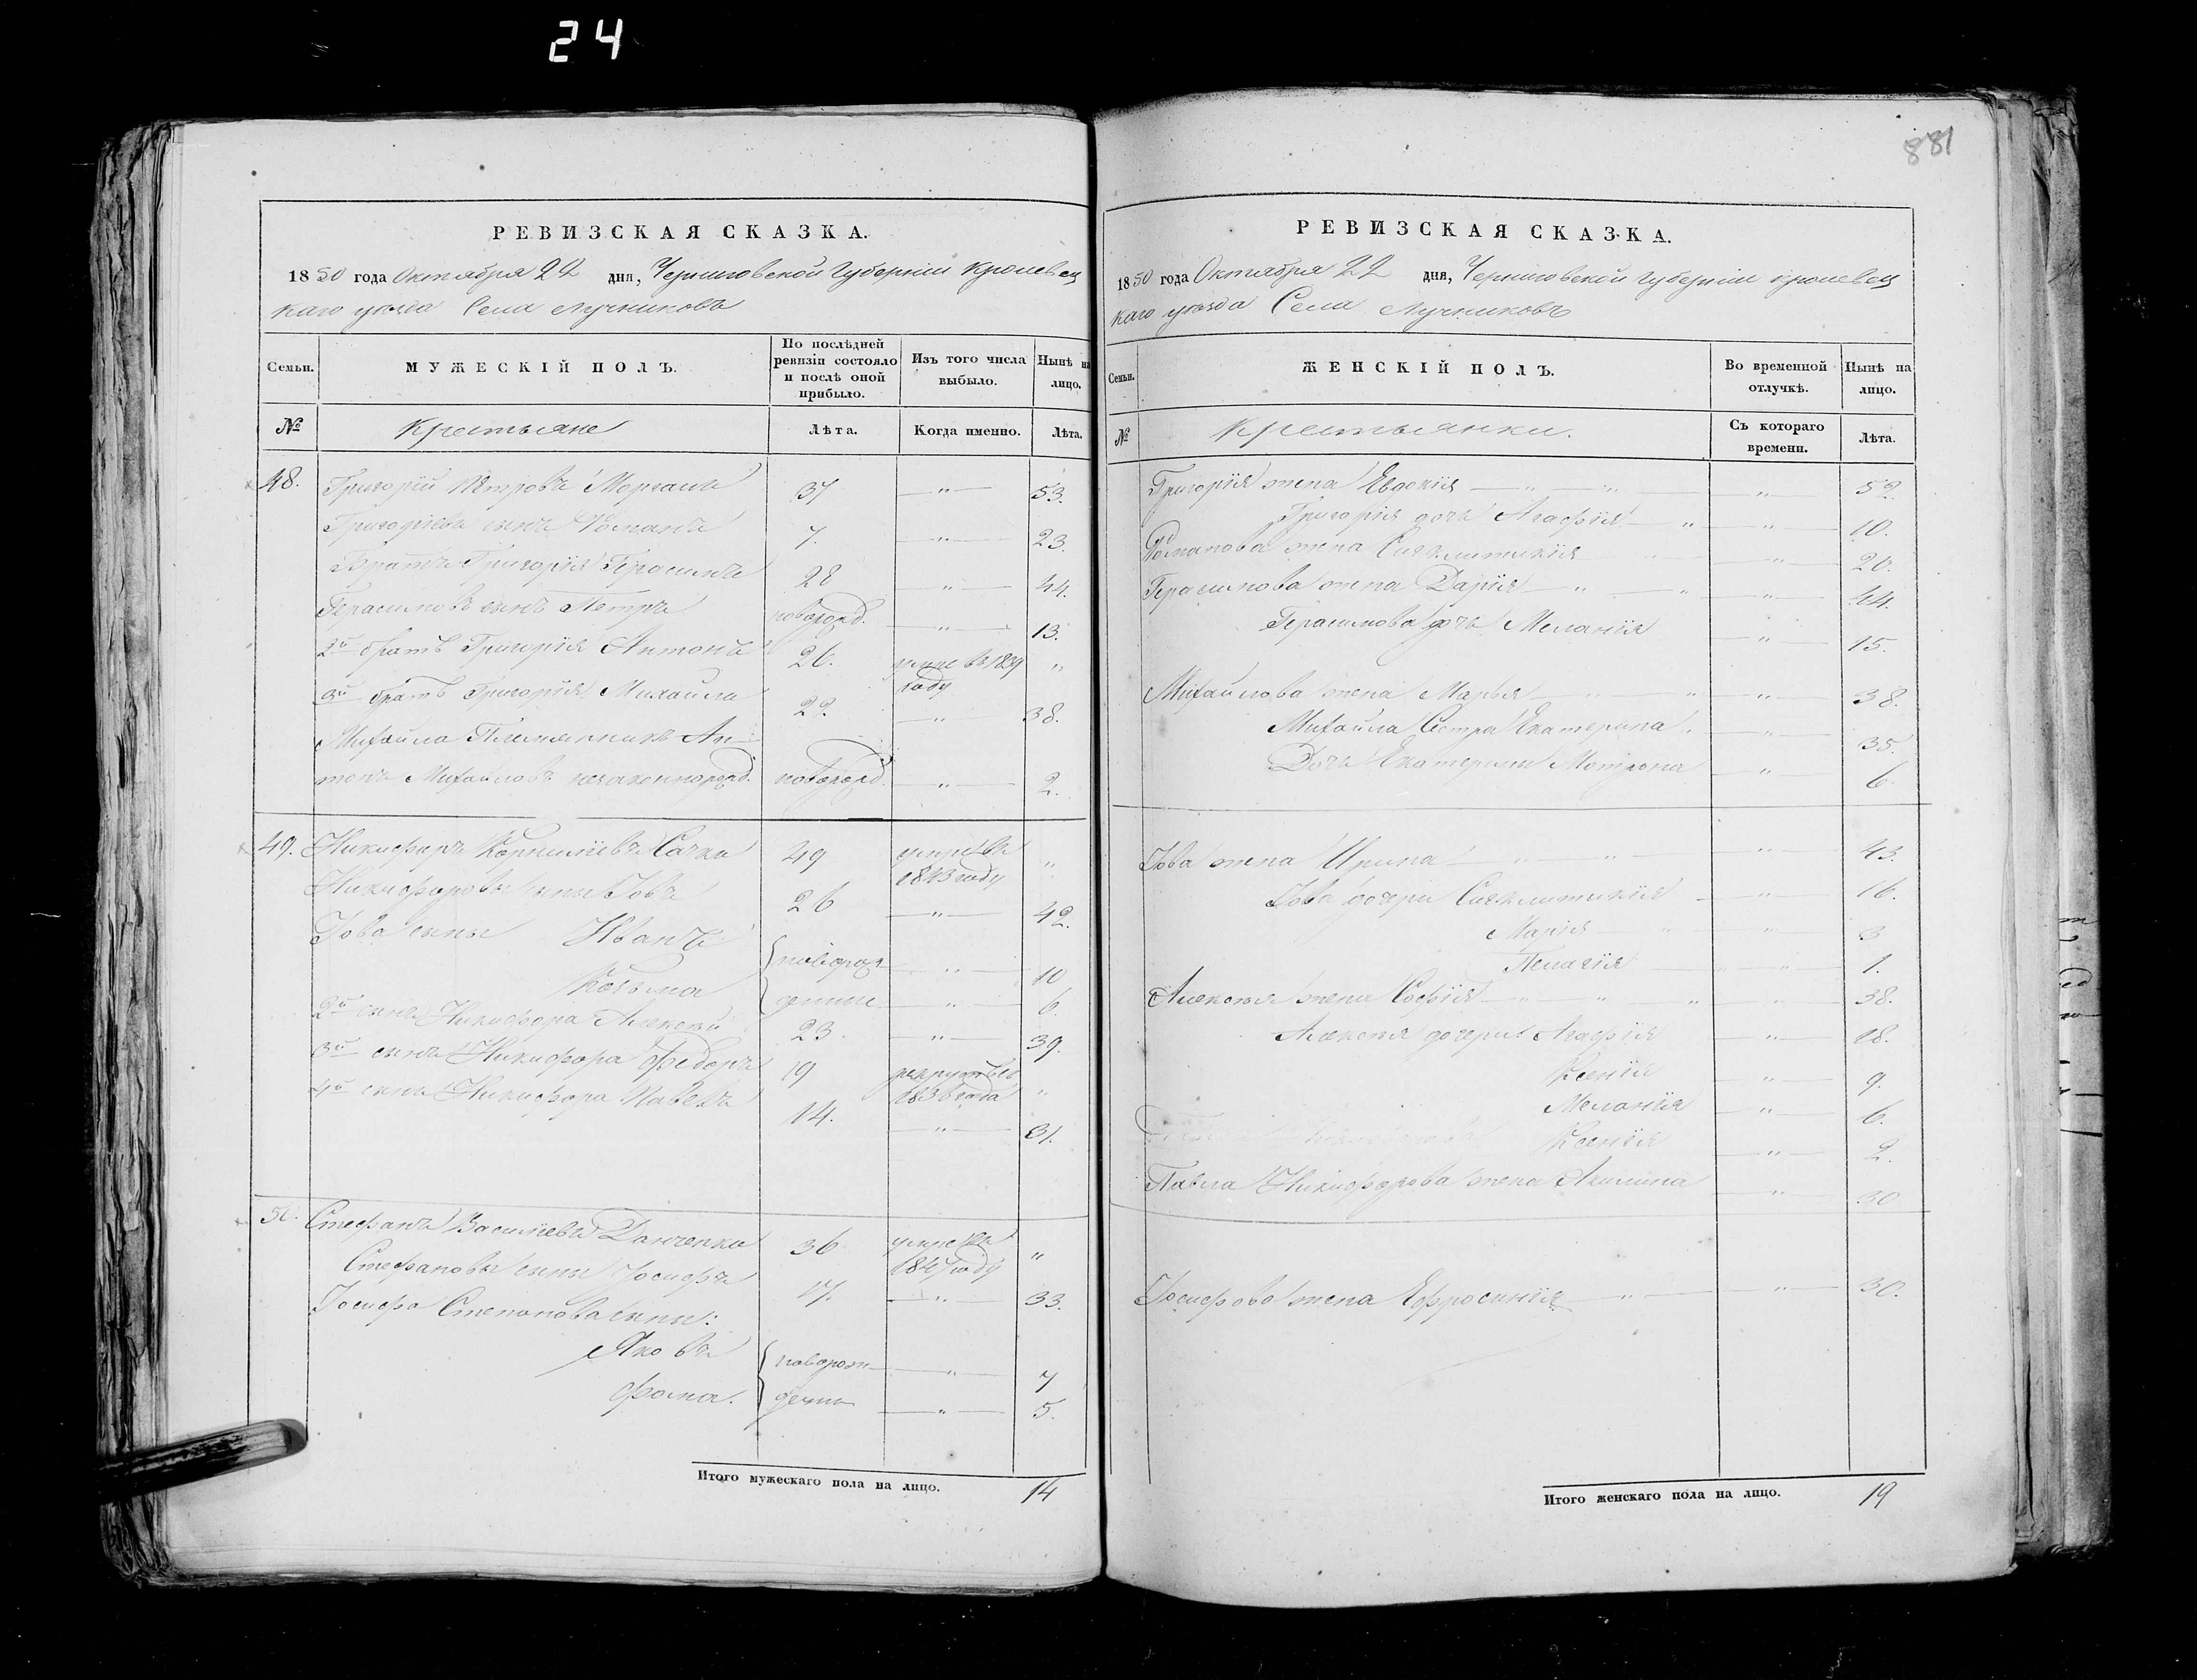 24
881
РЕВИЗСКАЯ СКАЗКА.
1850 года Октября 22 дня, Черниговской Губерніи Кролевец
каго уезда Села Лучниковъ
Семьи. МУЖЕСКІЙ ПОЛЪ. По послѣдней ревизіи состояло и послѣ оной прибыло. Изъ того числа выбыло. Нынѣ на лицо.
№ Крестьяне Лѣта. Когда именно. Лѣта.
48. Григорій Петровъ 37 — " — 53.
Григоріевъ сынъ Романъ 7. — " — 23.
Братъ Григорія Герасимъ 28 — " — 44.
Герасимовъ сынъ Петръ новорожд. — " — 13.
2й братъ Григорія Антонъ 26. умре въ 1839 году "
3й братъ Григорія Михайла 22. — " — 38.
Михайла Племянникъ Ан-
тонъ Михайловъ незаконнорожд. новорожд. — " — 2.
49. Никифоръ Корниліевъ Сачко 49 умре въ 1843 году "
Никифоровы сыны Іовъ 26 — " — 42.
Іова сыны Иванъ новорож- — " — 10
Козьма денные — " — 6.
2й сынъ Никифора Алексѣй 23. — " — 39.
3й сынъ Никифора Федоръ 19 рекрутъ съ 1836 года "
4й сынъ Никифора Павелъ 14. — " — 31.
50. Стефанъ Василіевъ Данченко 36 умре въ 1847 году "
Стефановы сыны Іосифъ 17. — " — 33.
Іосифа Степанова сыны:
Яковъ новорож- — " — 7
Фома. денны — " — 5.
Итого мужескаго пола на лицо. 14
РЕВИЗСКАЯ СКАЗКА.
1850 года Октября 22 дня, Черниговской Губерніи Кролевец
каго уезда Села Лучниковъ
Семьи. ЖЕНСКІЙ ПОЛЪ. Во временной отлучкѣ. Нынѣ на лицо.
№ Крестьянки. Съ котораго времени. Лѣта.
Григорія жена Евдокія — " — 52.
Григорія дочь Агафія — " — 10.
Романова жена Сигклитикія — " — 20.
Герасимова жена Дарія — " — 44.
Герасимова дочь Меланія — " — 15.
Михайлова жена Марья — " — 38.
Михайла Сестра Екатерина — " — 35.
Дочь Екатерины Мотрона — " — 6
Іова жена Ирина — " — 43.
Іова дочери Сигклитикія — " — 16.
Марія — " — 3
Пелагія — " — 1.
Алексѣя жена Софія — " — 38.
Алексѣя дочери: Агафія — " — 18.
Ксенія — " — 9.
Меланія — " — 6.
Ксенія — " — 2.
Павла Никифорова жена Акилина — " — 30
Іосифова жена Ефросинія — " — 30.
Итого женскаго пола на лицо. 19